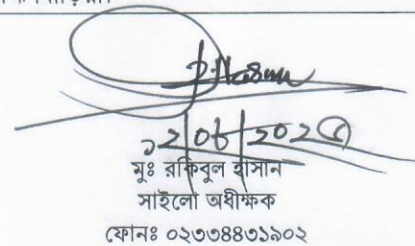 ১২|০৮|২০২৫
মুঃ রকিবুল হাসান
সাইলো অধীক্ষক
ফোনঃ ০২৩৩৪৪৩১৯০২